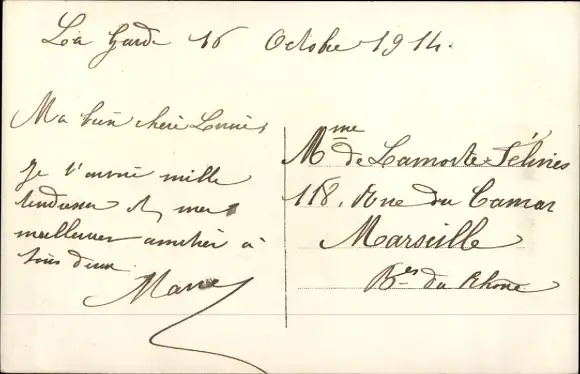 La Garde 16 Octobre 1914.
Ma bien chère Louise
Je t'envoie mille
tendresses et mes
meilleures amitiés à
tous deux.
Marie
Mme de Lamorte-Félines
118, Rue du Camas
Marseille
B.es du Rhône